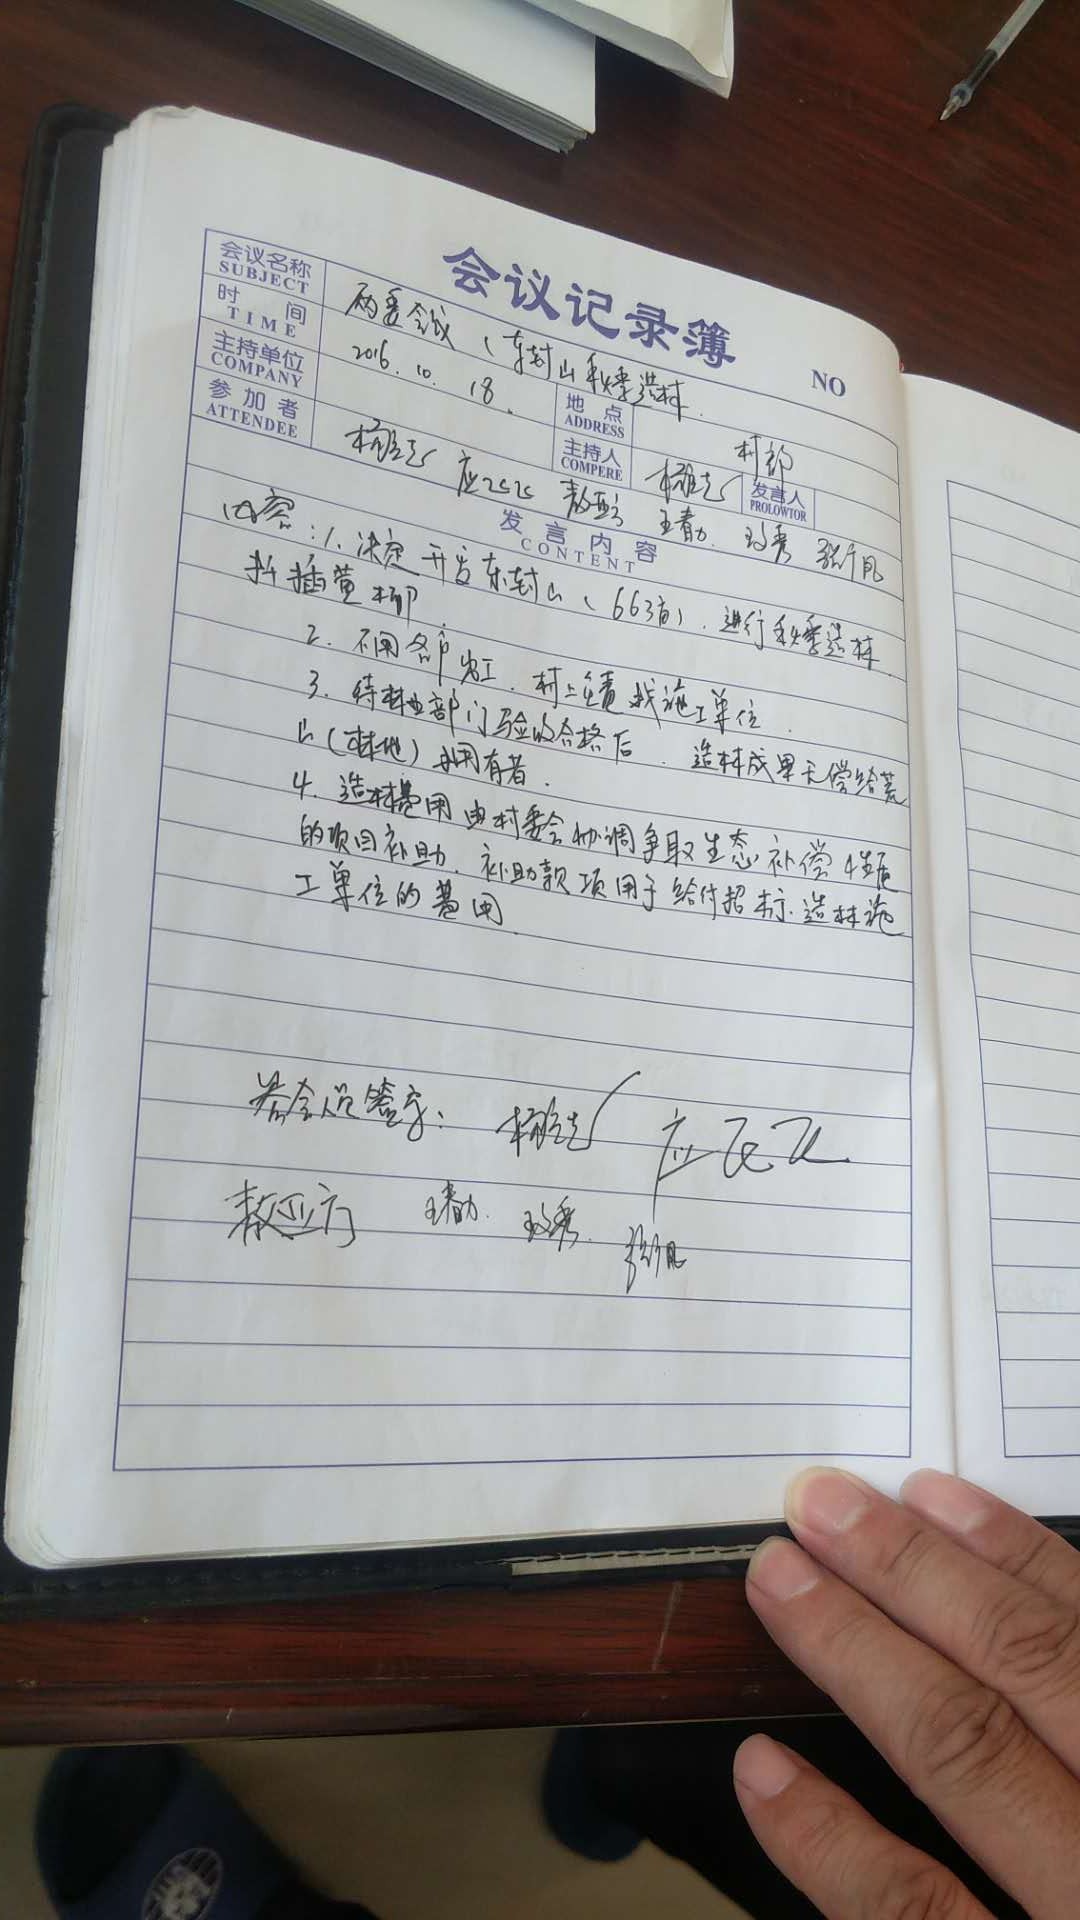 会议记录簿
NO
会议名称 两委会议(东封山秋季造林
SUBJECT
时间 2016.10.18.
TIME
地点 村部
ADDRESS
主持单位
COMPANY
主持人
COMPERE
发言人
PROLOWTOR
参加者
ATTENDEE
发言内容
CONTENT
内容:1.决定开发东封山(663亩).进行秋季造林
扦插黄柳.
2.不用各户出工.村上负责找施工单位.
3.待林业部门验收合格后.造林成果无偿给荒
山(林地)拥有者.
4.造林费用由村委会协调争取生态补偿性质
的项目补助.补助款项用于给付招标.造林施
工单位的费用.
参会人员签字: